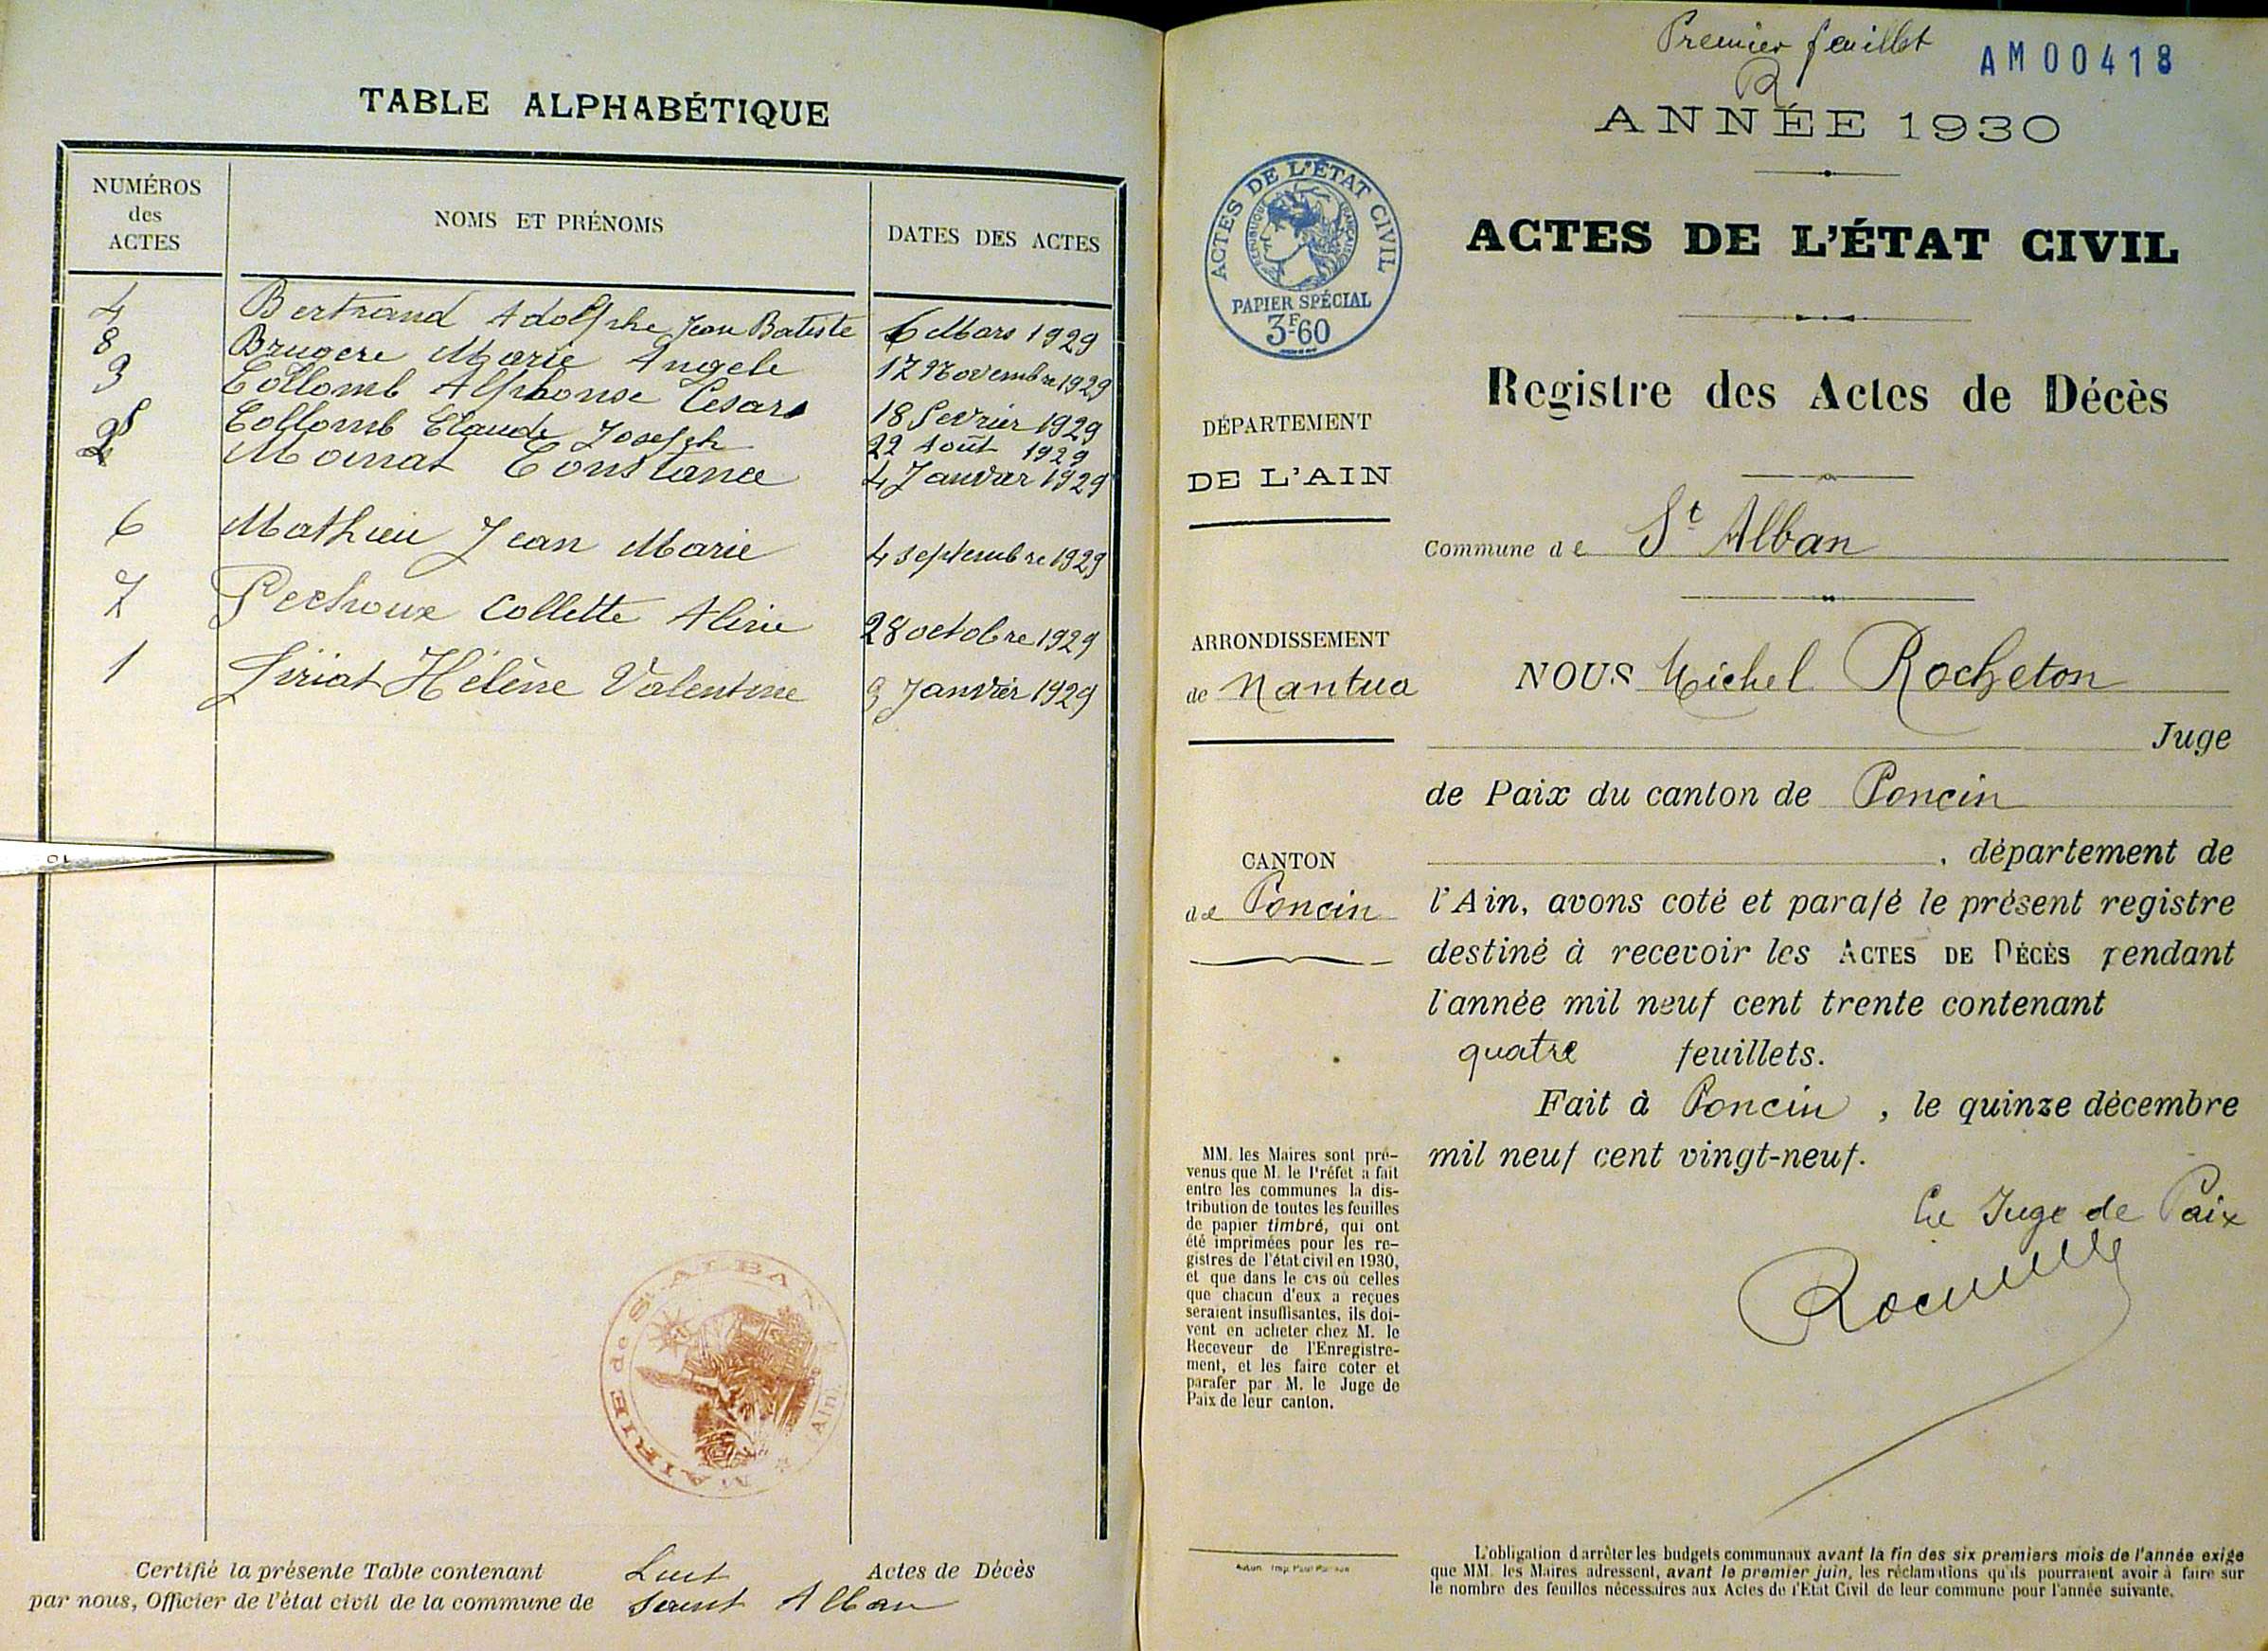 TABLE ALPHABÉTIQUE
NUMÉROS
des
ACTES
NOMS ET PRÉNOMS
DATES DES ACTES
4 Bertrand Adolphe Jean Batiste 6 Mars 1929
8 Brugere Marie Angele 17 Novembre 1929
3 Collomb Alphonse Cesar 18 Fevrier 1929
5 Collomb Claude Joseph 22 Août 1929
2 Moinat Constance 4 Janvier 1929
6 Mathieu Jean Marie 4 septembre 1929
7 Pechoux Collette Aline 28 octobre 1929
1 Siriat Hélène Valentine 3 Janvier 1929
MAIRIE de St ALBAN
Ain
Certifié la présente Table contenant huit Actes de Décès
par nous, Officier de l'état civil de la commune de Saint Alban
Premier feuillet
R
AM00418
ANNÉE 1930
ACTES DE L'ÉTAT CIVIL
RÉPUBLIQUE FRANÇAISE
PAPIER SPÉCIAL
3F60
ACTES DE L'ÉTAT CIVIL
Registre des Actes de Décès
DÉPARTEMENT
DE L'AIN
Commune de St Alban
ARRONDISSEMENT
de Nantua
NOUS Michel Rocheton
Juge
de Paix du canton de Poncin
, département de
CANTON
de Poncin
l'Ain, avons coté et parafé le présent registre
destiné à recevoir les ACTES DE DÉCÈS pendant
l'année mil neuf cent trente contenant
quatre feuillets.
Fait à Poncin, le quinze décembre
mil neuf cent vingt-neuf.
Le Juge de Paix
MM. les Maires sont pré-
venus que M. le Préfet a fait
entre les communes la dis-
tribution de toutes les feuilles
de papier timbré, qui ont
été imprimées pour les re-
gistres de l'état civil en 1930,
et que dans le cas où celles
que chacun d'eux a reçues
seraient insuffisantes, ils doi-
vent en acheter chez M. le
Receveur de l'Enregistre-
ment, et les faire coter et
parafer par M. le Juge de
Paix de leur canton.
L'obligation d'arrêter les budgets communaux avant la fin des six premiers mois de l'année exige
que MM. les Maires adressent, avant le premier juin, les réclamations qu'ils pourraient avoir à faire sur
le nombre des feuilles nécessaires aux Actes de l'État Civil de leur commune pour l'année suivante.